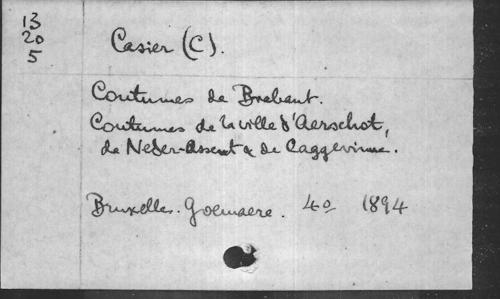 13
20
5
Casier (C).
Coutumes de Brabant.
Coutumes de la ville d'Aerschot,
de Neder-Assent & de Caggevinne.
Bruxelles. Goemaere. 4o 1894